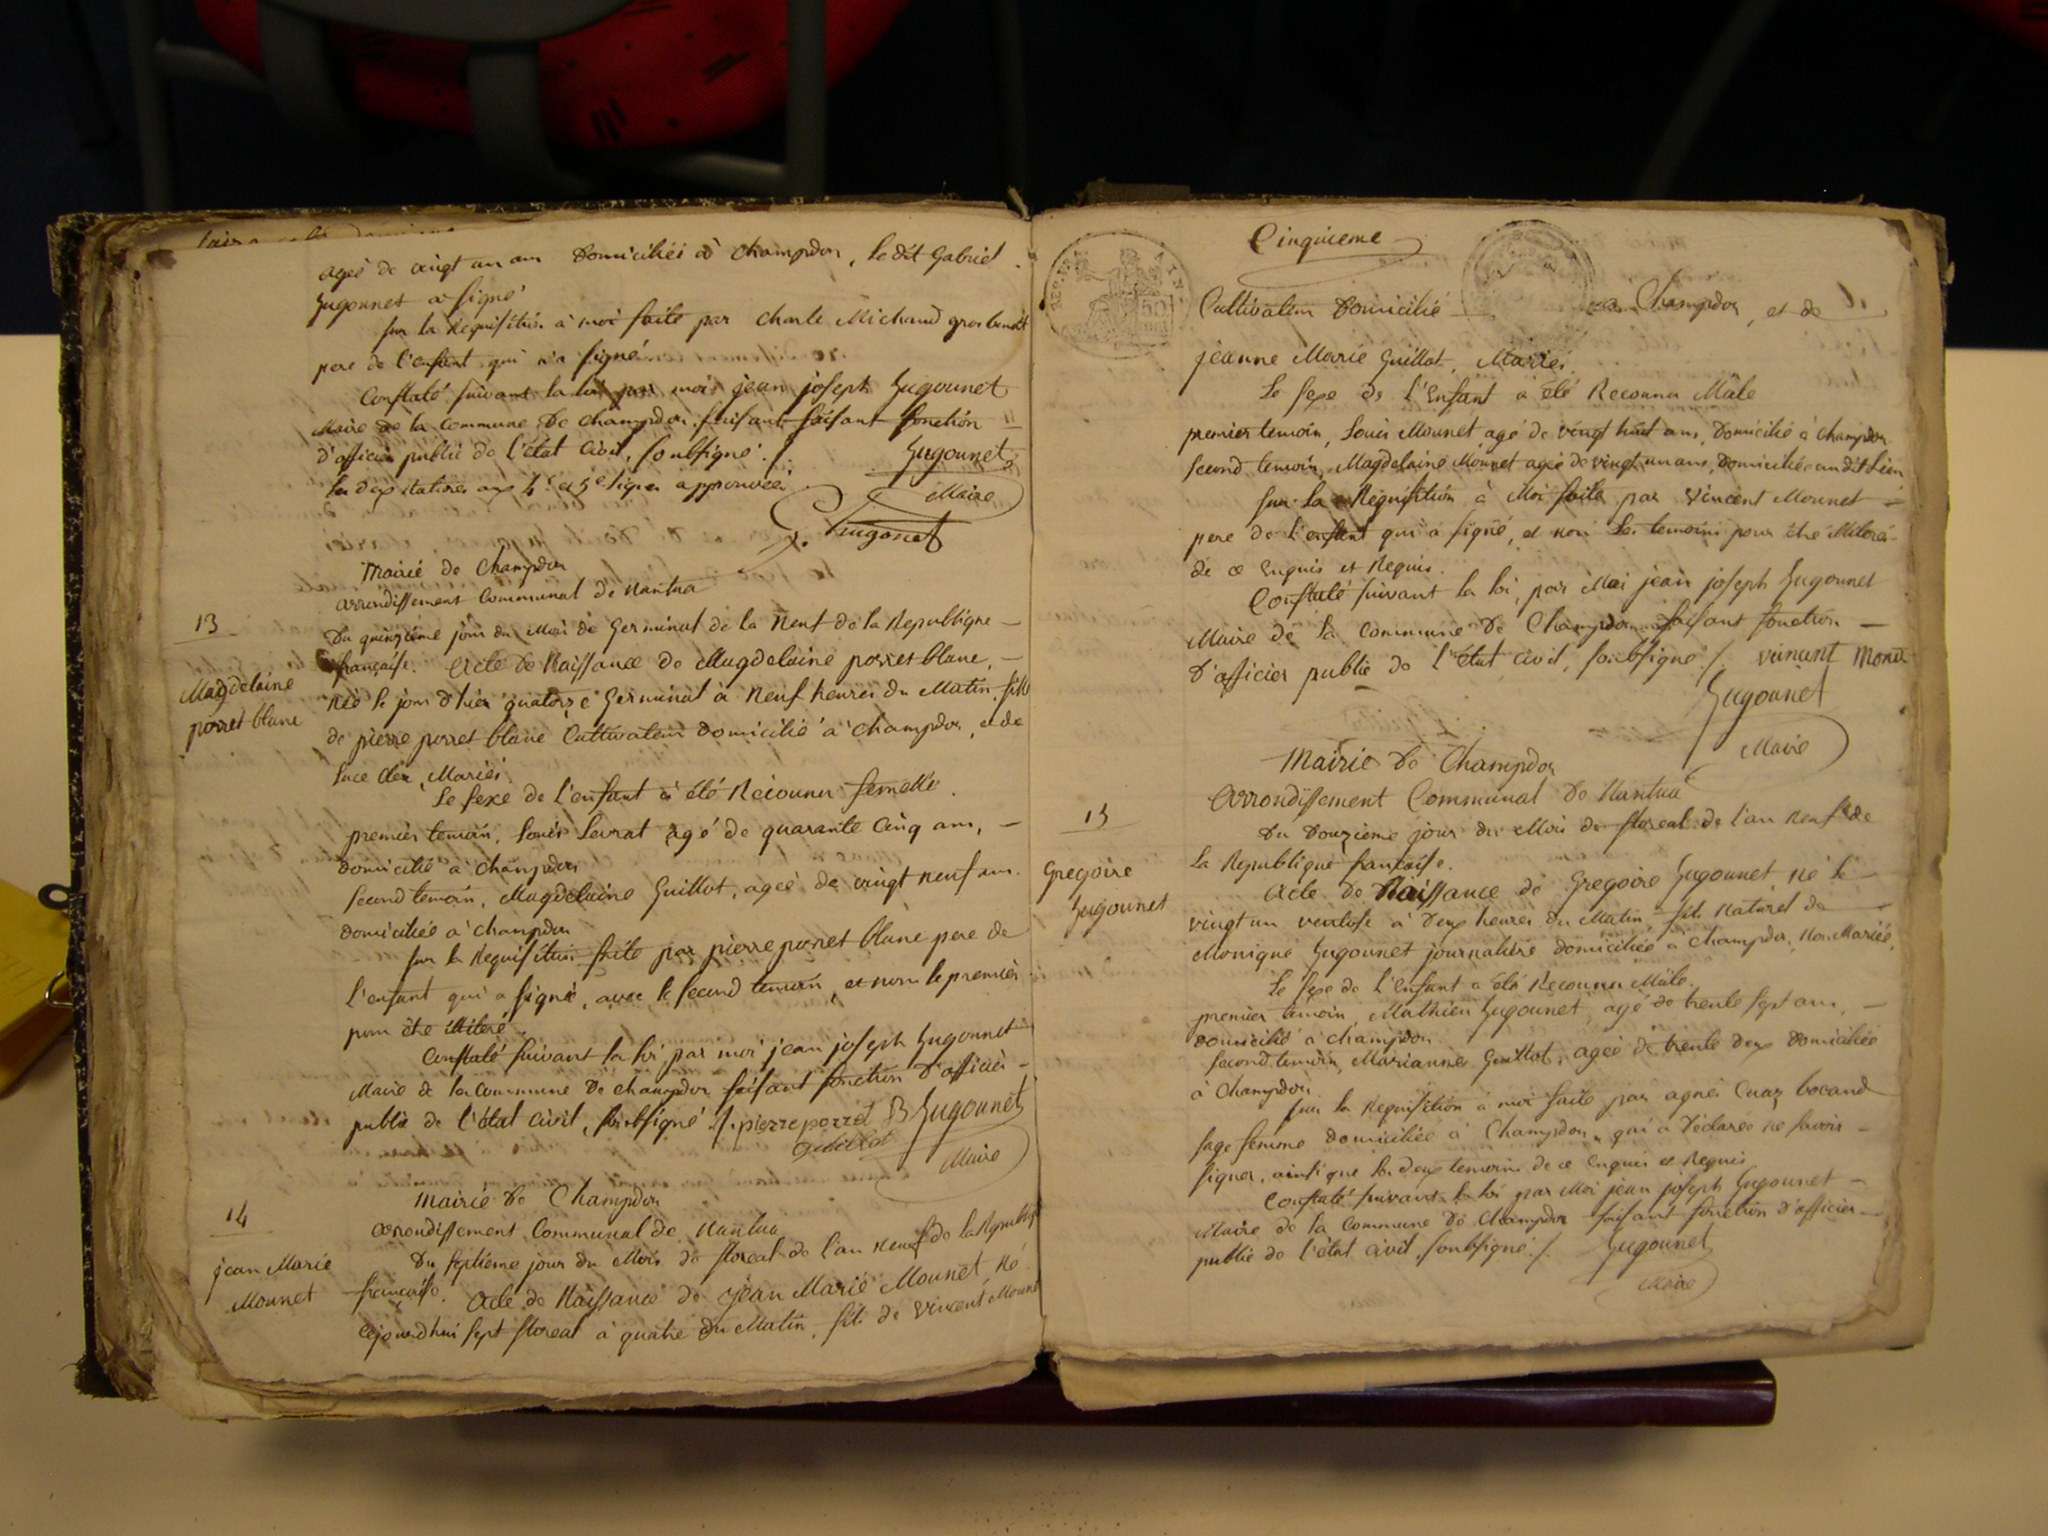 agée de vingt un ans Domiciliée à Champdor, le dit Gabriel
Gugonnet a signé
sur la Requisition à moi faite par Charle Michaud gros benoit
pere de l'enfant qui n'a signé
Constaté suivant la loi par moi jean joseph Gugonnet
Maire de la Commune de champdor faisant faisant fonction
d'officier public de l'état Civil, soubsigné ./. Gugonnet
approuvées
Maire
Gugonet
Mairie de Champdor
arrondissement Communal de Nantua
13
Du quinzième jour du Mois de Germinal de la Neuf de la Republique
française. Acte de Naissance de Magdelaine porret blanc,
Magdelaine
porret blanc
née le jour d'hier quatorze Germinal à Neuf heures du Matin, fille
de pierre porret blanc Cultivateur domicilié à champdor, et de
Mariés.
Le sexe de l'enfant à été Reconnu femelle.
premier temoin, Louis Savrat agé de quarante Cinq ans,
domicilié à champdor
second temoin, Magdelaine Guillot, agée de vingt neuf ans
domiciliée à champdor
sur la Requisition faite par pierre porret blanc pere de
l'enfant qui a signé, avec le second temoin, et non le premier
pour être illiteré.
Constaté suivant la loi par moi jean joseph Gugonnet
Maire de la Commune de champdor faisant fonction d'officier
public de l'état Civil, soubsigné ./. pierre porret B Gugonnet
guillot
Maire
Mairie de Champdor
14
arrondissement Communal de Nantua
Du septième jour du Mois de floreal de l'an neuf de la Republiq
française. Acte de Naissance de jean Marie Mounet né
jean Marie
Mounet
cejourd'hui sept floreal à quatre du Matin, fils de vincent Mounet
Cinquieme
Cultivateur Domicilié à Champdor, et de
jeanne Marie Guillot, Mariés.
Le sexe de l'Enfant à été Reconnu Mâle
premier temoin, Louis Mounet agé de vingt huit ans, Domicilié à champdor
second temoin, Magdelaine Mounet agée de vingt un ans, Domiciliée audit Lieu
sur la Requisition à Moi faite par Vincent Mounet
pere de l'enfant qui a signé, et non les temoins pour être illiterés
de ce Enquis et Requis.
Constaté suivant la loi, par Moi jean joseph Gugonnet
Maire de la Commune de Champdor faisant fonction
d'officier public de l'état Civil, soubsigné ./. vincent Mone
Gugounet
Maire
Mairie de Champdor
Arrondissement Communal de Nantua
15
Du Douzieme jour du Mois de floreal de l'an neuf de
la Republique francaise.
Gregoire
Gugounet
Acte de Naissance de Gregoire Gugounet, né le
vingt un ventose à deux heures du Matin fils Naturel de
Monique Gugounet journaliere domiciliée à champdor, Non Mariée,
Le sexe de l'Enfant a été Reconnu Mâle.
premier temoin, Mathieu Gugounet, agé de trente sept ans,
domicilié à champdor
second temoin, Marianne Guillot, agée de trente deux domiciliée
à Champdor.
sur la Requisition à moi faite par agnés Cuaz bocand
sage femme domiciliée à Champdor, qui a declaré ne savoir
signer, ainsi que les deux temoins de ce Enquis et Requis
Constaté suivant la loi par Moi jean joseph Gugounet
Maire de la Commune de Champdor faisant fonction d'officier
public de l'état Civil soubsigné ./. Gugounet
Maire